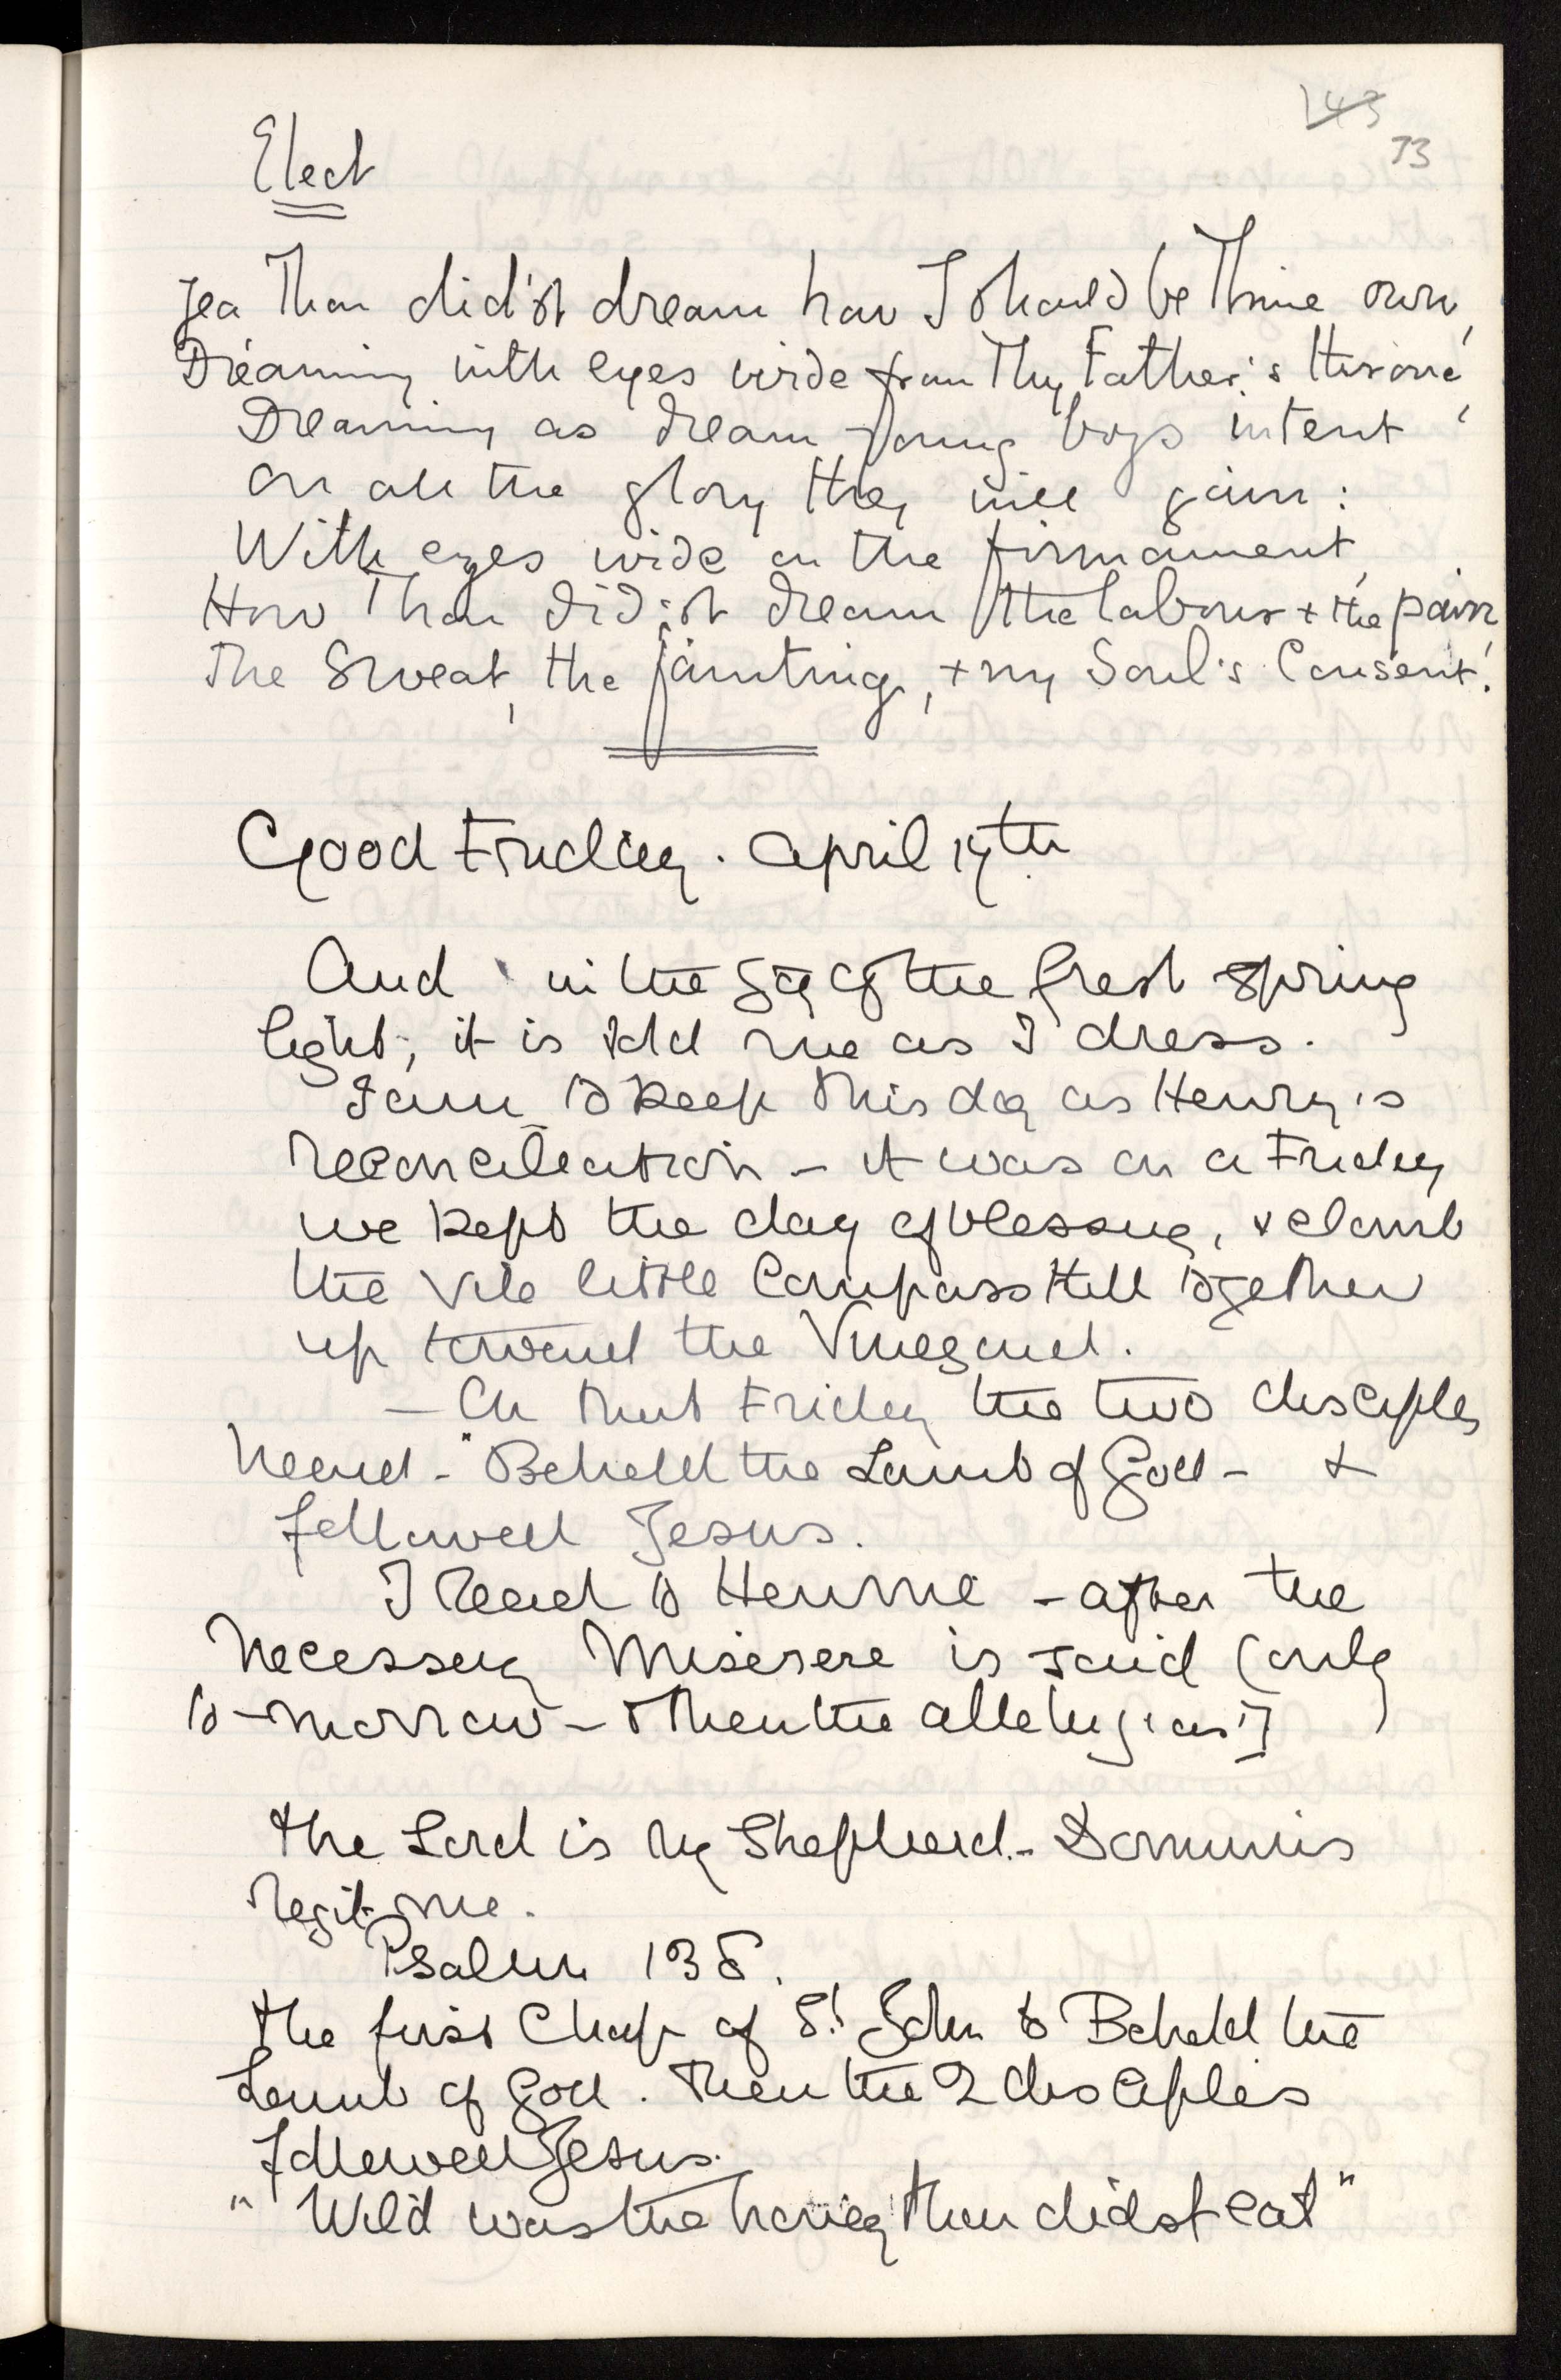 143
73
Elect
Yea Thou did'st dream how I should be Thine own,
Dreaming with eyes wide from Thy Father's throne,
Dreaming as dream young boys intent
On all the glory they will gain:
With eyes wide on the firmament,
How Thou did'st dream the labour + the pain,
The Sweat, the fainting, + my Soul's Consent!
Good Friday. April 14th
And in the joy of the fresh spring
light, it is told me as I dress.
I am to keep this day as Henry's
reconciliation – it was on a Friday
we kept the day of blessing, & clomb
the vile little Compass Hill together
up toward the Vineyard.
– On that Friday the two disciples
heard – "Behold the Lamb of God – &
followed Jesus.
I read to Hennie – after the
necessary Miserere is said (only
to-morrow – then the allelujias!)
The Lord is my Shepherd. – Dominus
regit me.
Psalm 138.
The first Chap of St John to Behold the
Lamb of God. Then the 2 disciples
followed Jesus.
"Wild was the honey thou didst eat"